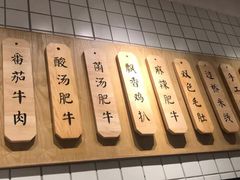 番茄牛肉
酸汤肥牛
菌汤肥牛
飘香鸡扒
麻辣肥牛
双色毛肚
过桥米线
手工